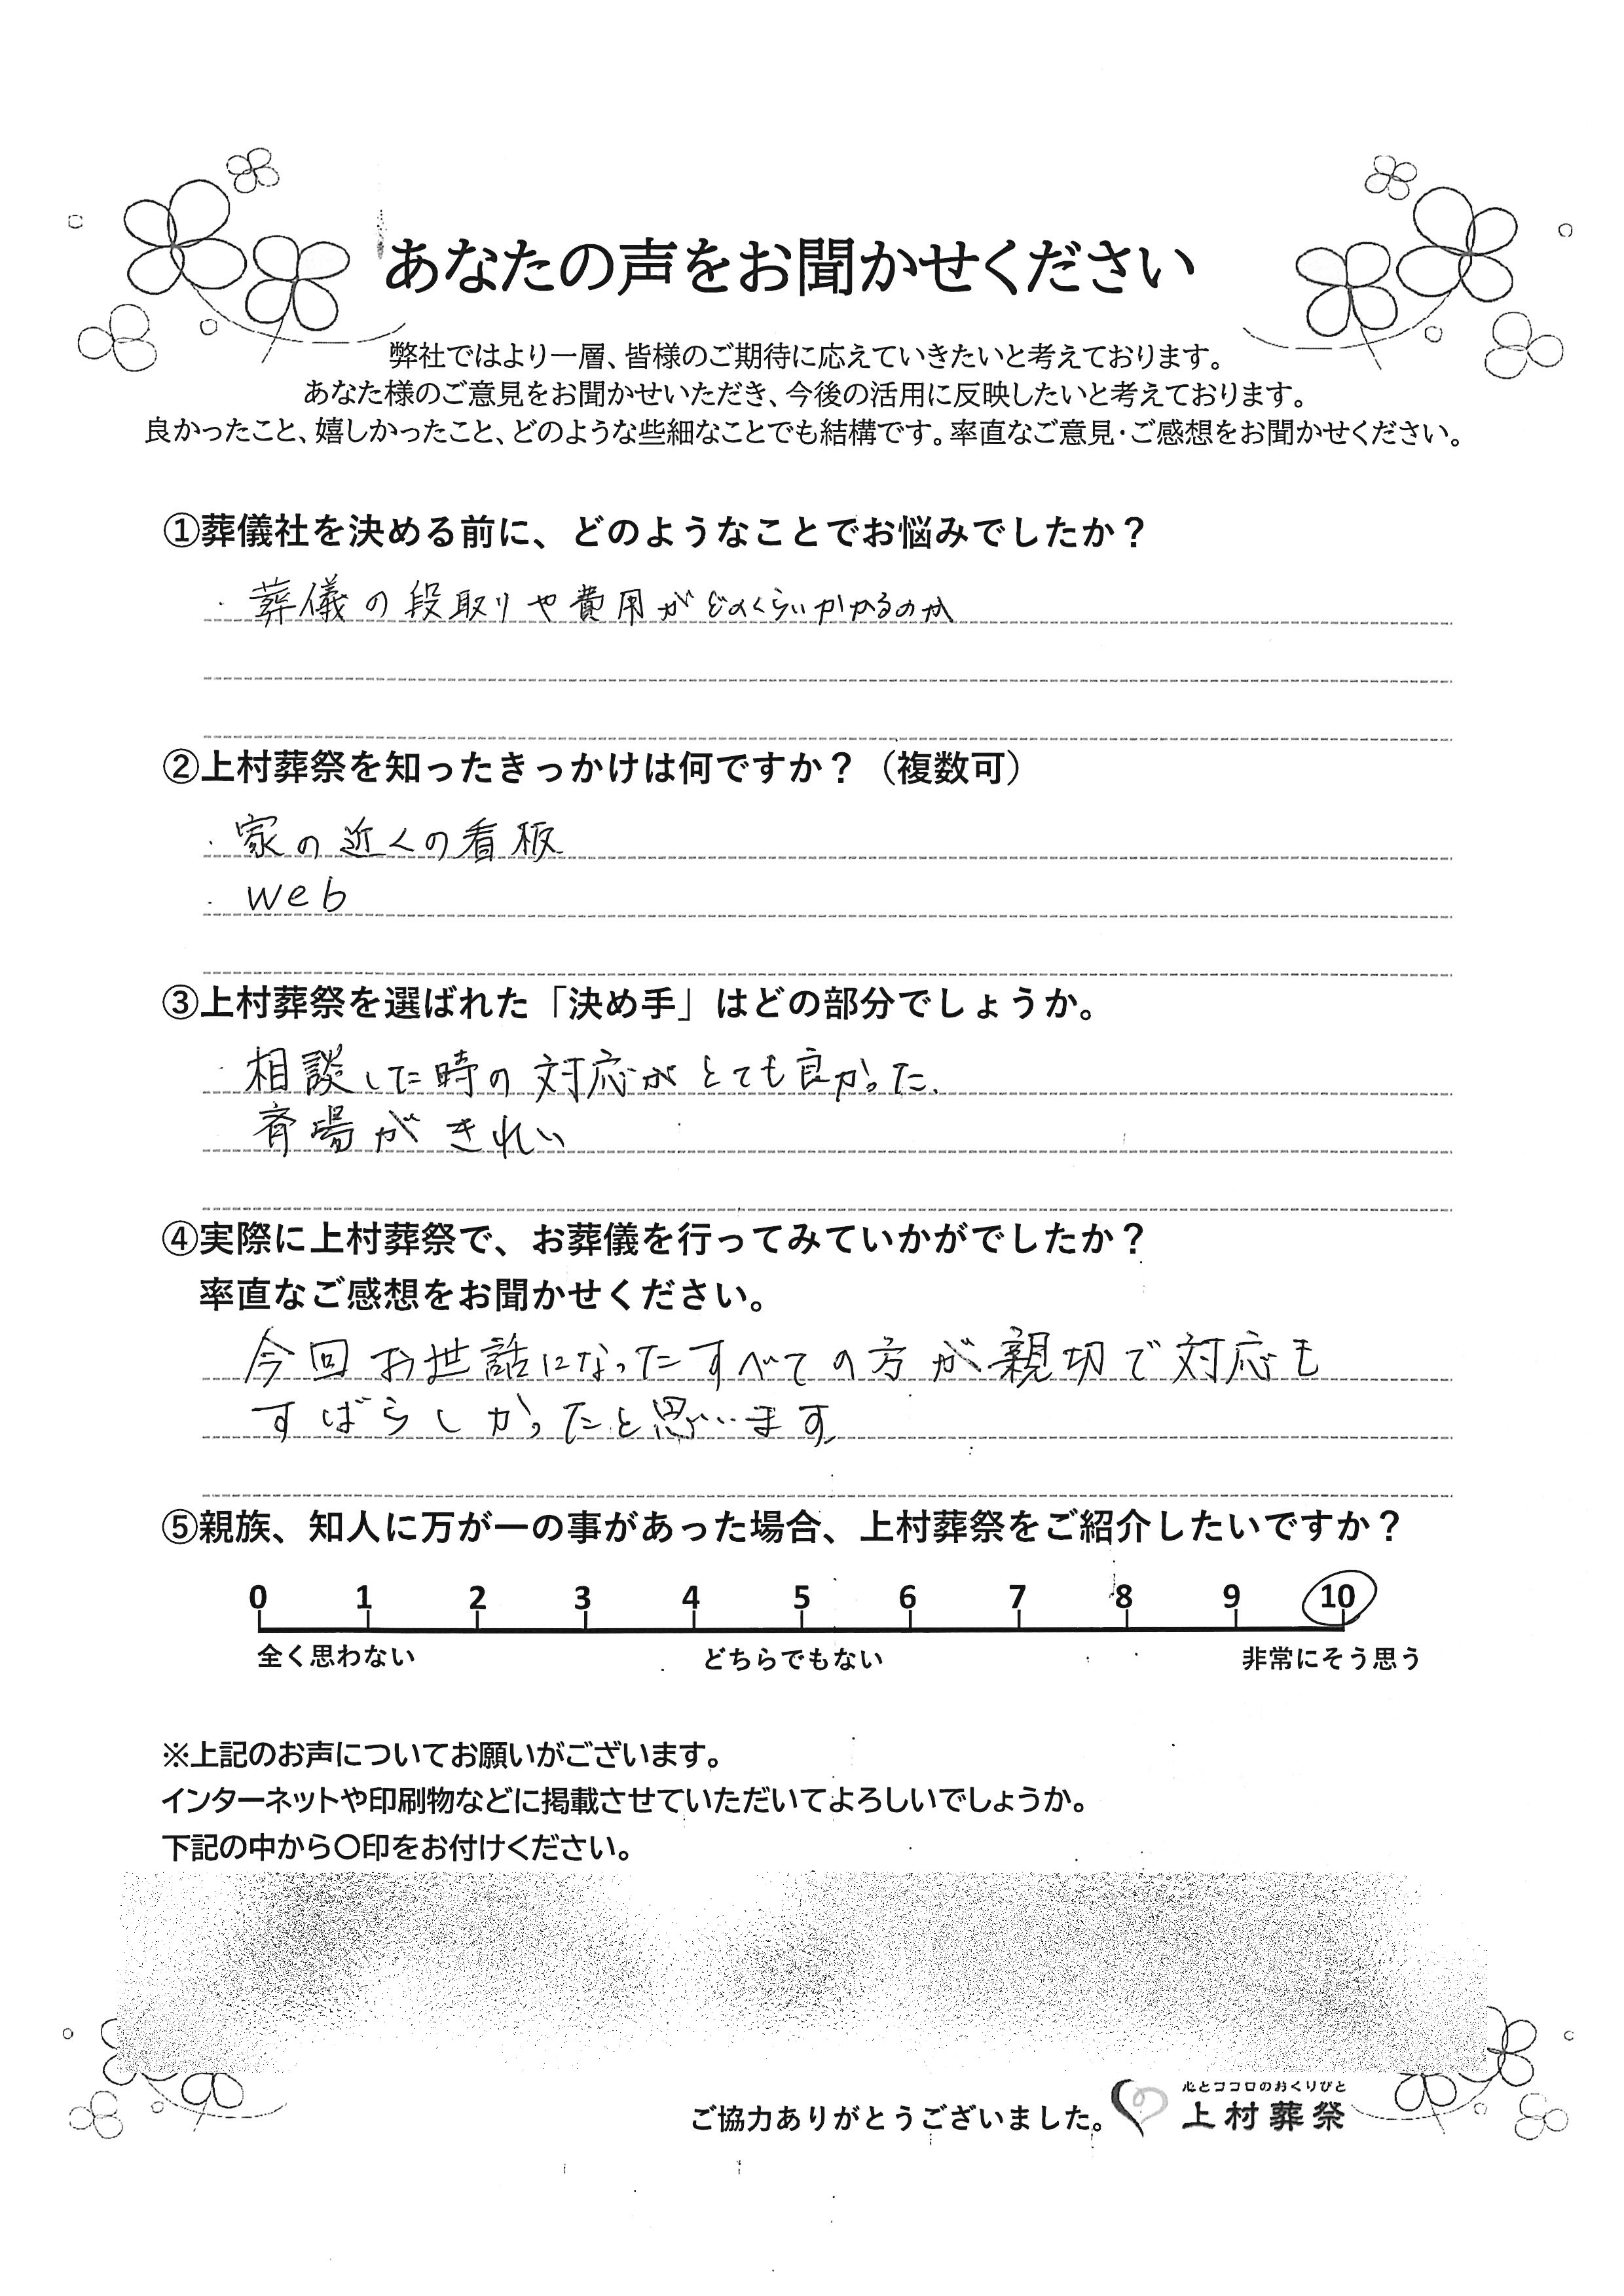 あなたの声をお聞かせください
弊社ではより一層、皆様のご期待に応えていきたいと考えております。
あなた様のご意見をお聞かせいただき、今後の活用に反映したいと考えております。
良かったこと、嬉しかったこと、どのような些細なことでも結構です。率直なご意見・ご感想をお聞かせください。
①葬儀社を決める前に、どのようなことでお悩みでしたか？
・葬儀の段取りや費用がどのくらいかかるのか
②上村葬祭を知ったきっかけは何ですか？（複数可）
・家の近くの看板
・web
③上村葬祭を選ばれた「決め手」はどの部分でしょうか。
・相談した時の対応がとても良かった。
斉場がきれい
④実際に上村葬祭で、お葬儀を行ってみていかがでしたか？
率直なご感想をお聞かせください。
今回お世話になったすべての方が親切で対応も
すばらしかったと思います。
⑤親族、知人に万が一の事があった場合、上村葬祭をご紹介したいですか？
0 1 2 3 4 5 6 7 8 9 10
全く思わない どちらでもない 非常にそう思う
※上記のお声についてお願いがございます。
インターネットや印刷物などに掲載させていただいてよろしいでしょうか。
下記の中から〇印をお付けください。
心とココロのおくりびと
ご協力ありがとうございました。 上村葬祭